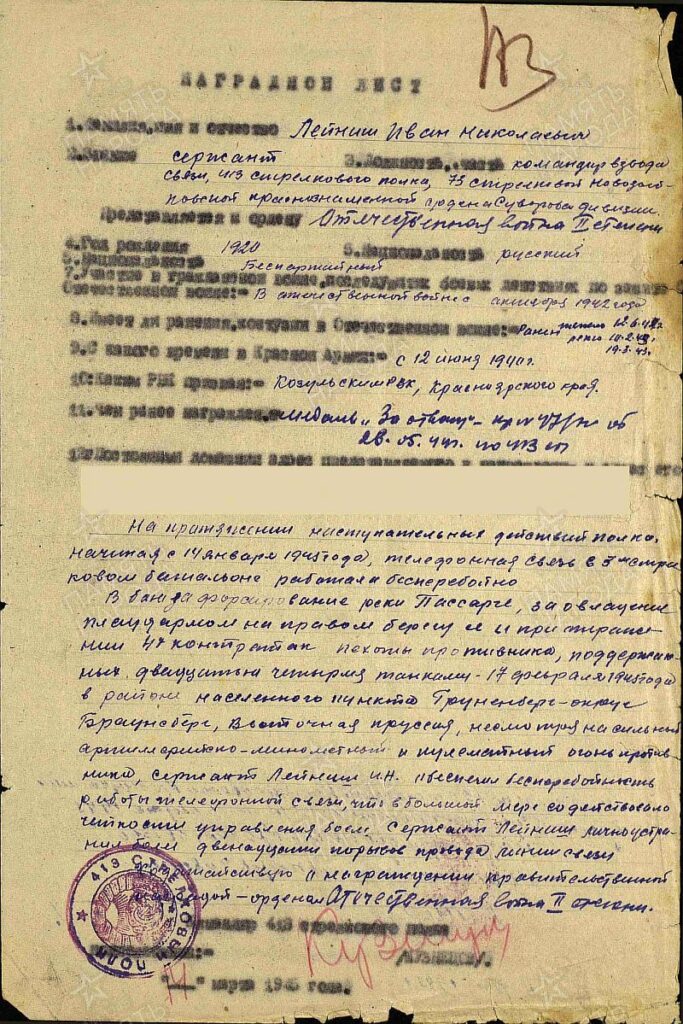 НАГРАДНОЙ ЛИСТ
1.Фамилия,имя и отчество Лейниш Иван Николаевич
2.Звание сержант 3.Должность,часть командир взвода
связи, 413 стрелкового полка, 73 стрелковой Новозыб-
ковской краснознаменной ордена Суворова дивизии.
Представляется к ордену Отечественная война II степени
4.Год рождения 1920 5.Национальность русский
Беспартийный
7.Участие в гражданской войне,последующих боевых действиях по защите
Отечественной войне:- В отечественной войне с октября 1942 года
8.Имеет ли ранения,контузии в Отечественной войне:- Ранен
19.3.43г.
9.С какого времени в Красной Армии:- с 12 июня 1940г.
10.Каким РВК призван:- Козульским РВК, Красноярского края.
11.Чем ранее награжден.- медаль "За отвагу"
по 413 сп
На протяжении наступательных действий полка,
начиная с 14 января 1945 года, телефонная связь в стрел-
ковом батальоне работала бесперебойно
В боях за форсирование реки Пассарге, за овладение
плацдармом на правом берегу её и при отраже-
нии 4х контратак пехоты противника, поддержан-
ных двадцатью четырмя танками - 17 февраля 1945 года
в районе населенного пункта Груненберг-округ
Браунсберг, Восточная Пруссия, несмотря на сильный
артиллерийско-минометный и пулеметный огонь против-
ника, сержант Лейниш И.Н. обеспечил бесперебойность
работы телефонной связи, что в большой мере содействовало
четкости управления боем. Сержант Лейниш лично устра-
нил более двенадцати порывов провода линии связи
награждении правительственной
наградой - орденом Отечественная война II степени.
413 СТРЕЛКОВЫЙ ПОЛК
413 стрелкового полка
/КУЗНЕЦОВ/.
марта 1945 года.